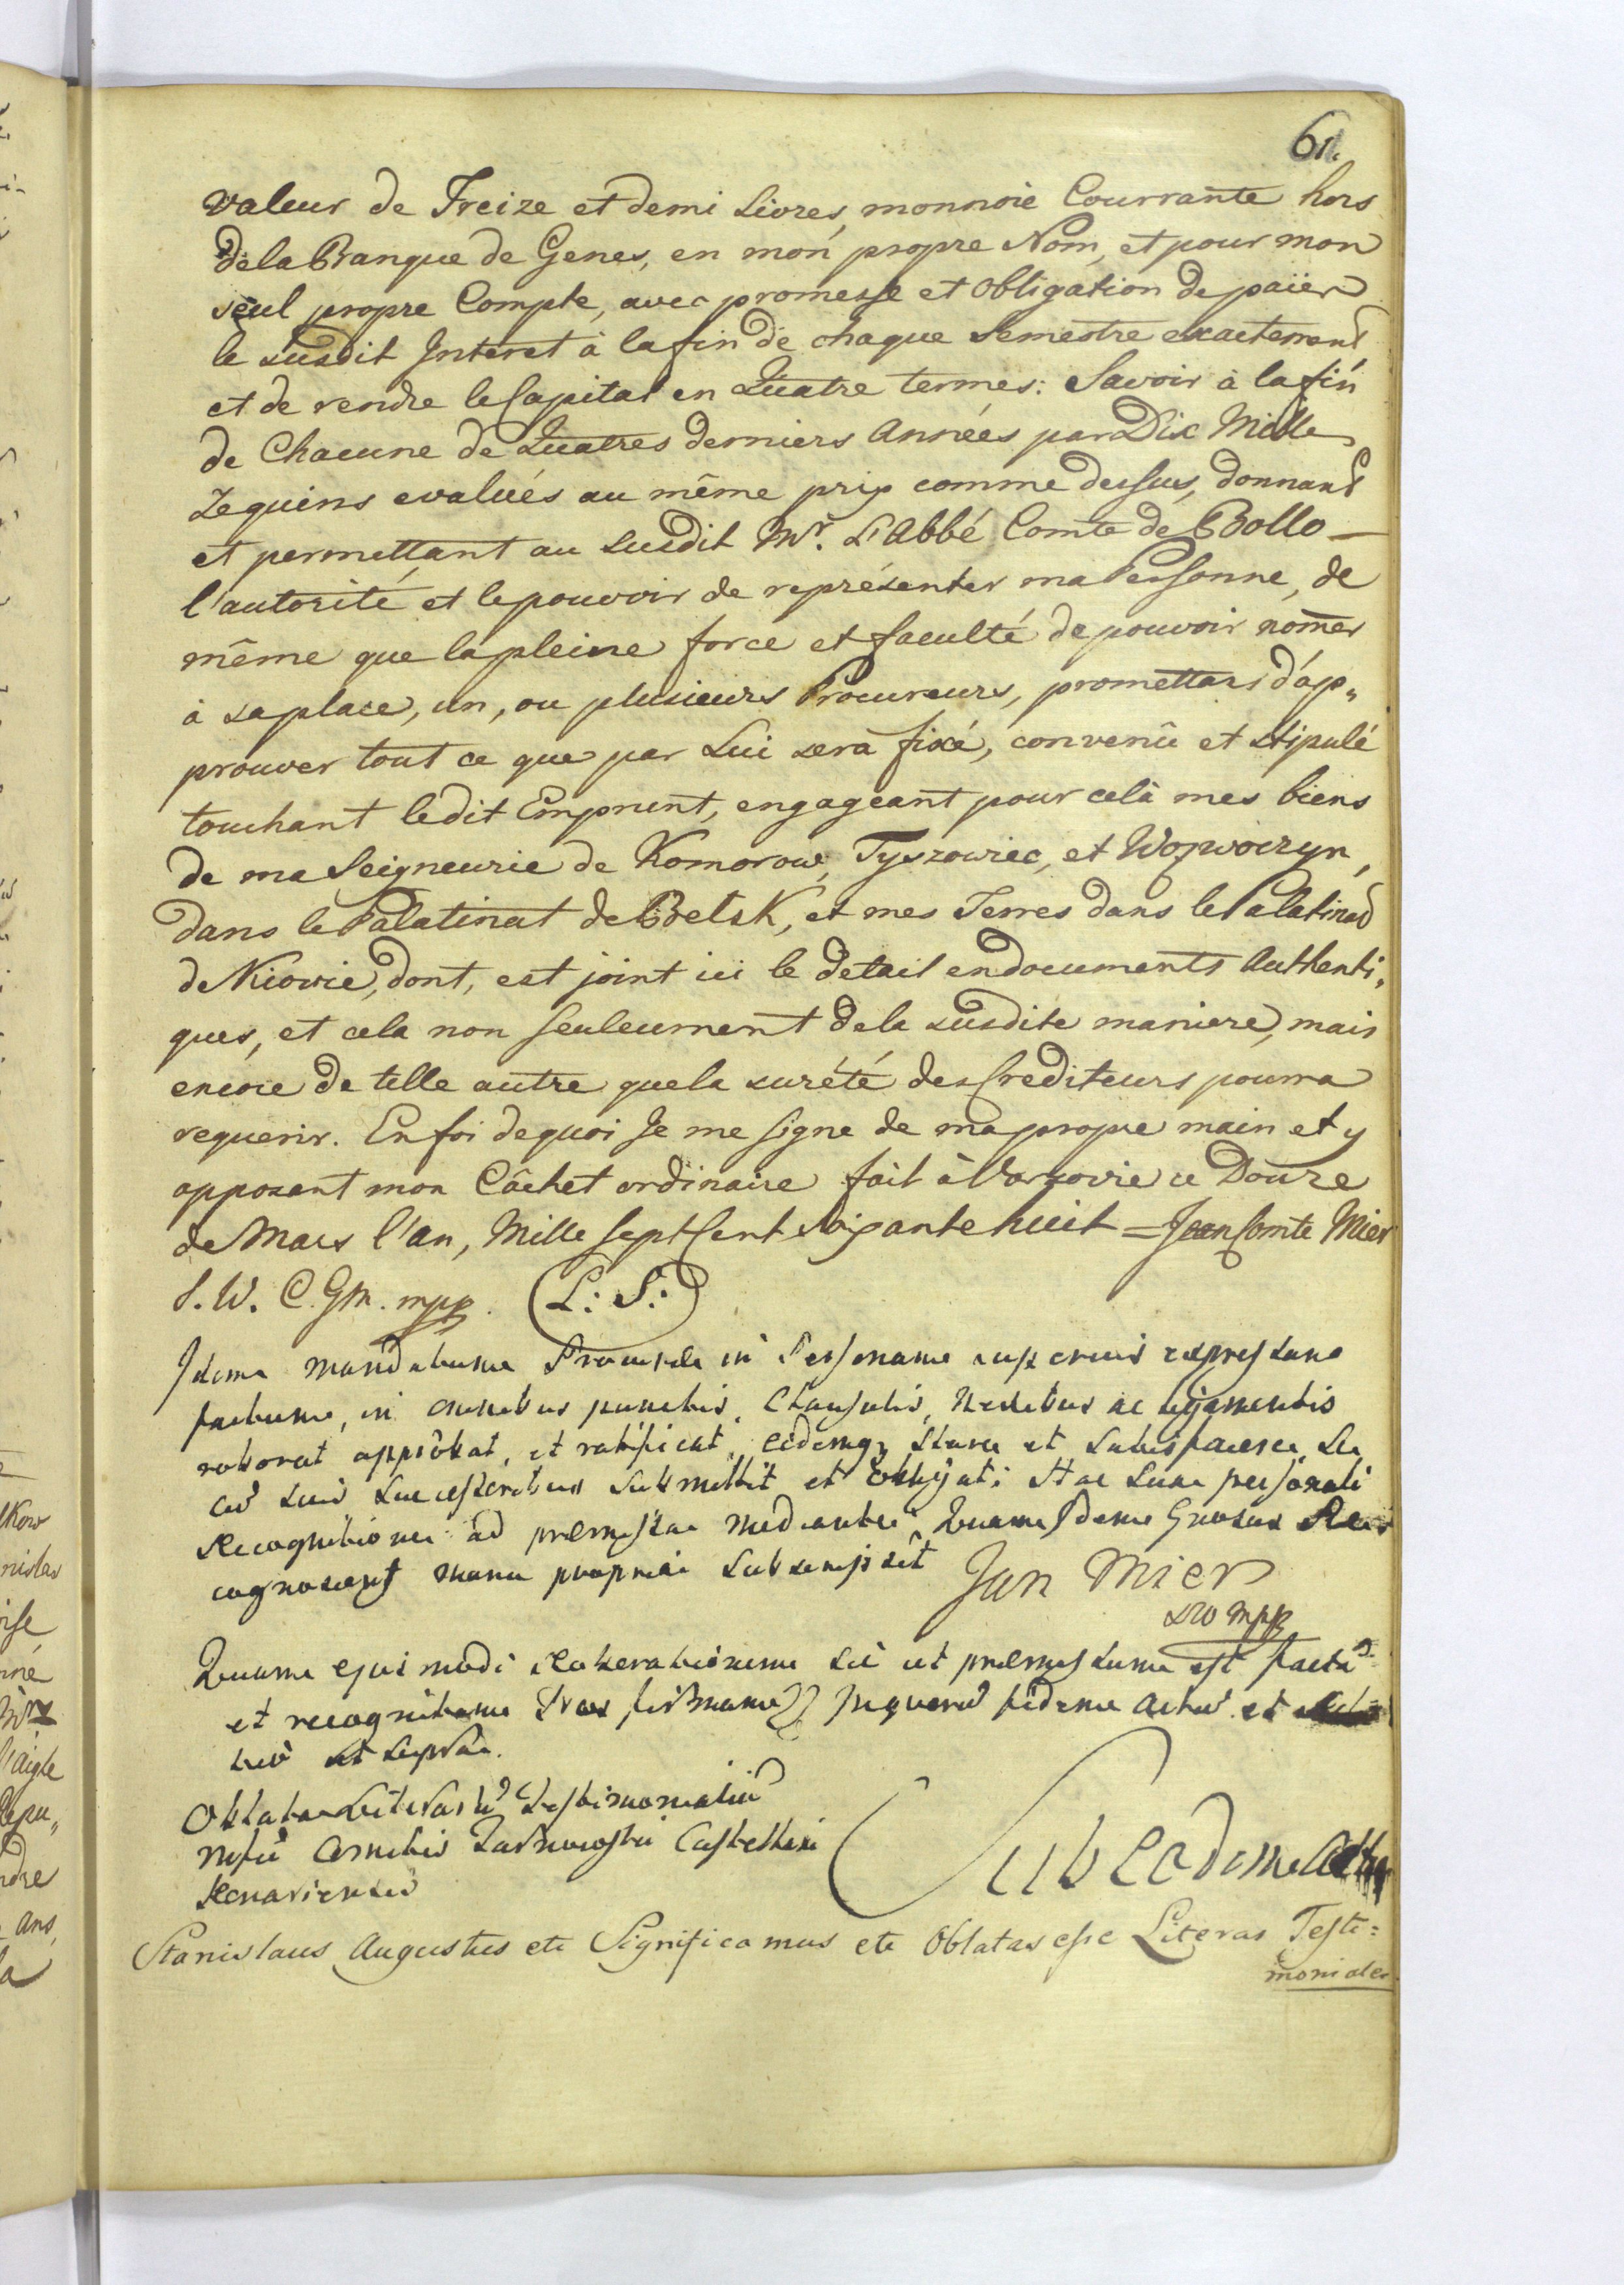 61.
valeur de Treize et demi Livres, monnoie Courrante hors
de la Banque de Genes, en mon propre Nom, et pour mon
seul propre Compte, avec promesse et Obligation de païer
le susdit Interet à la fin de chaque Semestre exactement
et de rendre le Capital en Quatre termes: Savoir à la fin
de Chacune de Quatres derniers Années par Dix Mille
Zequins evalués au même prix comme dessus, donnant
et permettant au susdit Mr. L'Abbé Comte de Bollo
l'autorité et le pouvoir de représenter ma Personne, de
même que la pleine force et faculté de pouvoir nom̄er
à sa place, un, ou plusieurs Procureurs, promettant d'ap„
prouver tout ce que par Lui sera fixé, convenû et stipulé
touchant ledit Emprunt, engageant pour celà mes biens
de ma Seigneurie de Komorow, Tyszowiec, et Wozuczyn,
dans le Palatinat de Belsk, et mes Terres dans le Palatinat
de Kiovie, dont, est joint ici le detail en documents Authenti„
ques, et cela non seuleument de la susdite maniere, mais
encore de telle autre que la sureté des Crediteurs pourra
requerir. En foi de quoi Je me signe de ma propre main et y
apposant mon Câchet ordinaire fait à Varsovie ce Douze
de Mars l'an, Mille Sept Cent soixante huit = Jean Comte Mier
S. W. C. Gm. mpp. (L: S:)
Idem mandatum Praemissa in Personam superius expressam
factum, in omnibus punctis, Clausulis, Nexibus ac ligamentis
roborat approbat, et ratificat, eidemq, stare et satisfacere se
cum suis successoribus submittit et obligat: Hac sua personali
Recognitione ad praemissa mediante, Quam Idem Gnosus Re
cognoscens manu propria subscripsit Jan Mier
swo mpp
Quam ejusmodi Roborationem sic ut praemissum est factam
et recognitam Nos firmam in quem fidem
ut supra.
Oblata Literarum Testimonialium
Mfci Comitis Tarnowski Castellani
Konariensis
Sub eadem Actu
Stanislaus Augustus etc Significamus etc Oblatas esse Literas Testi=
moniales